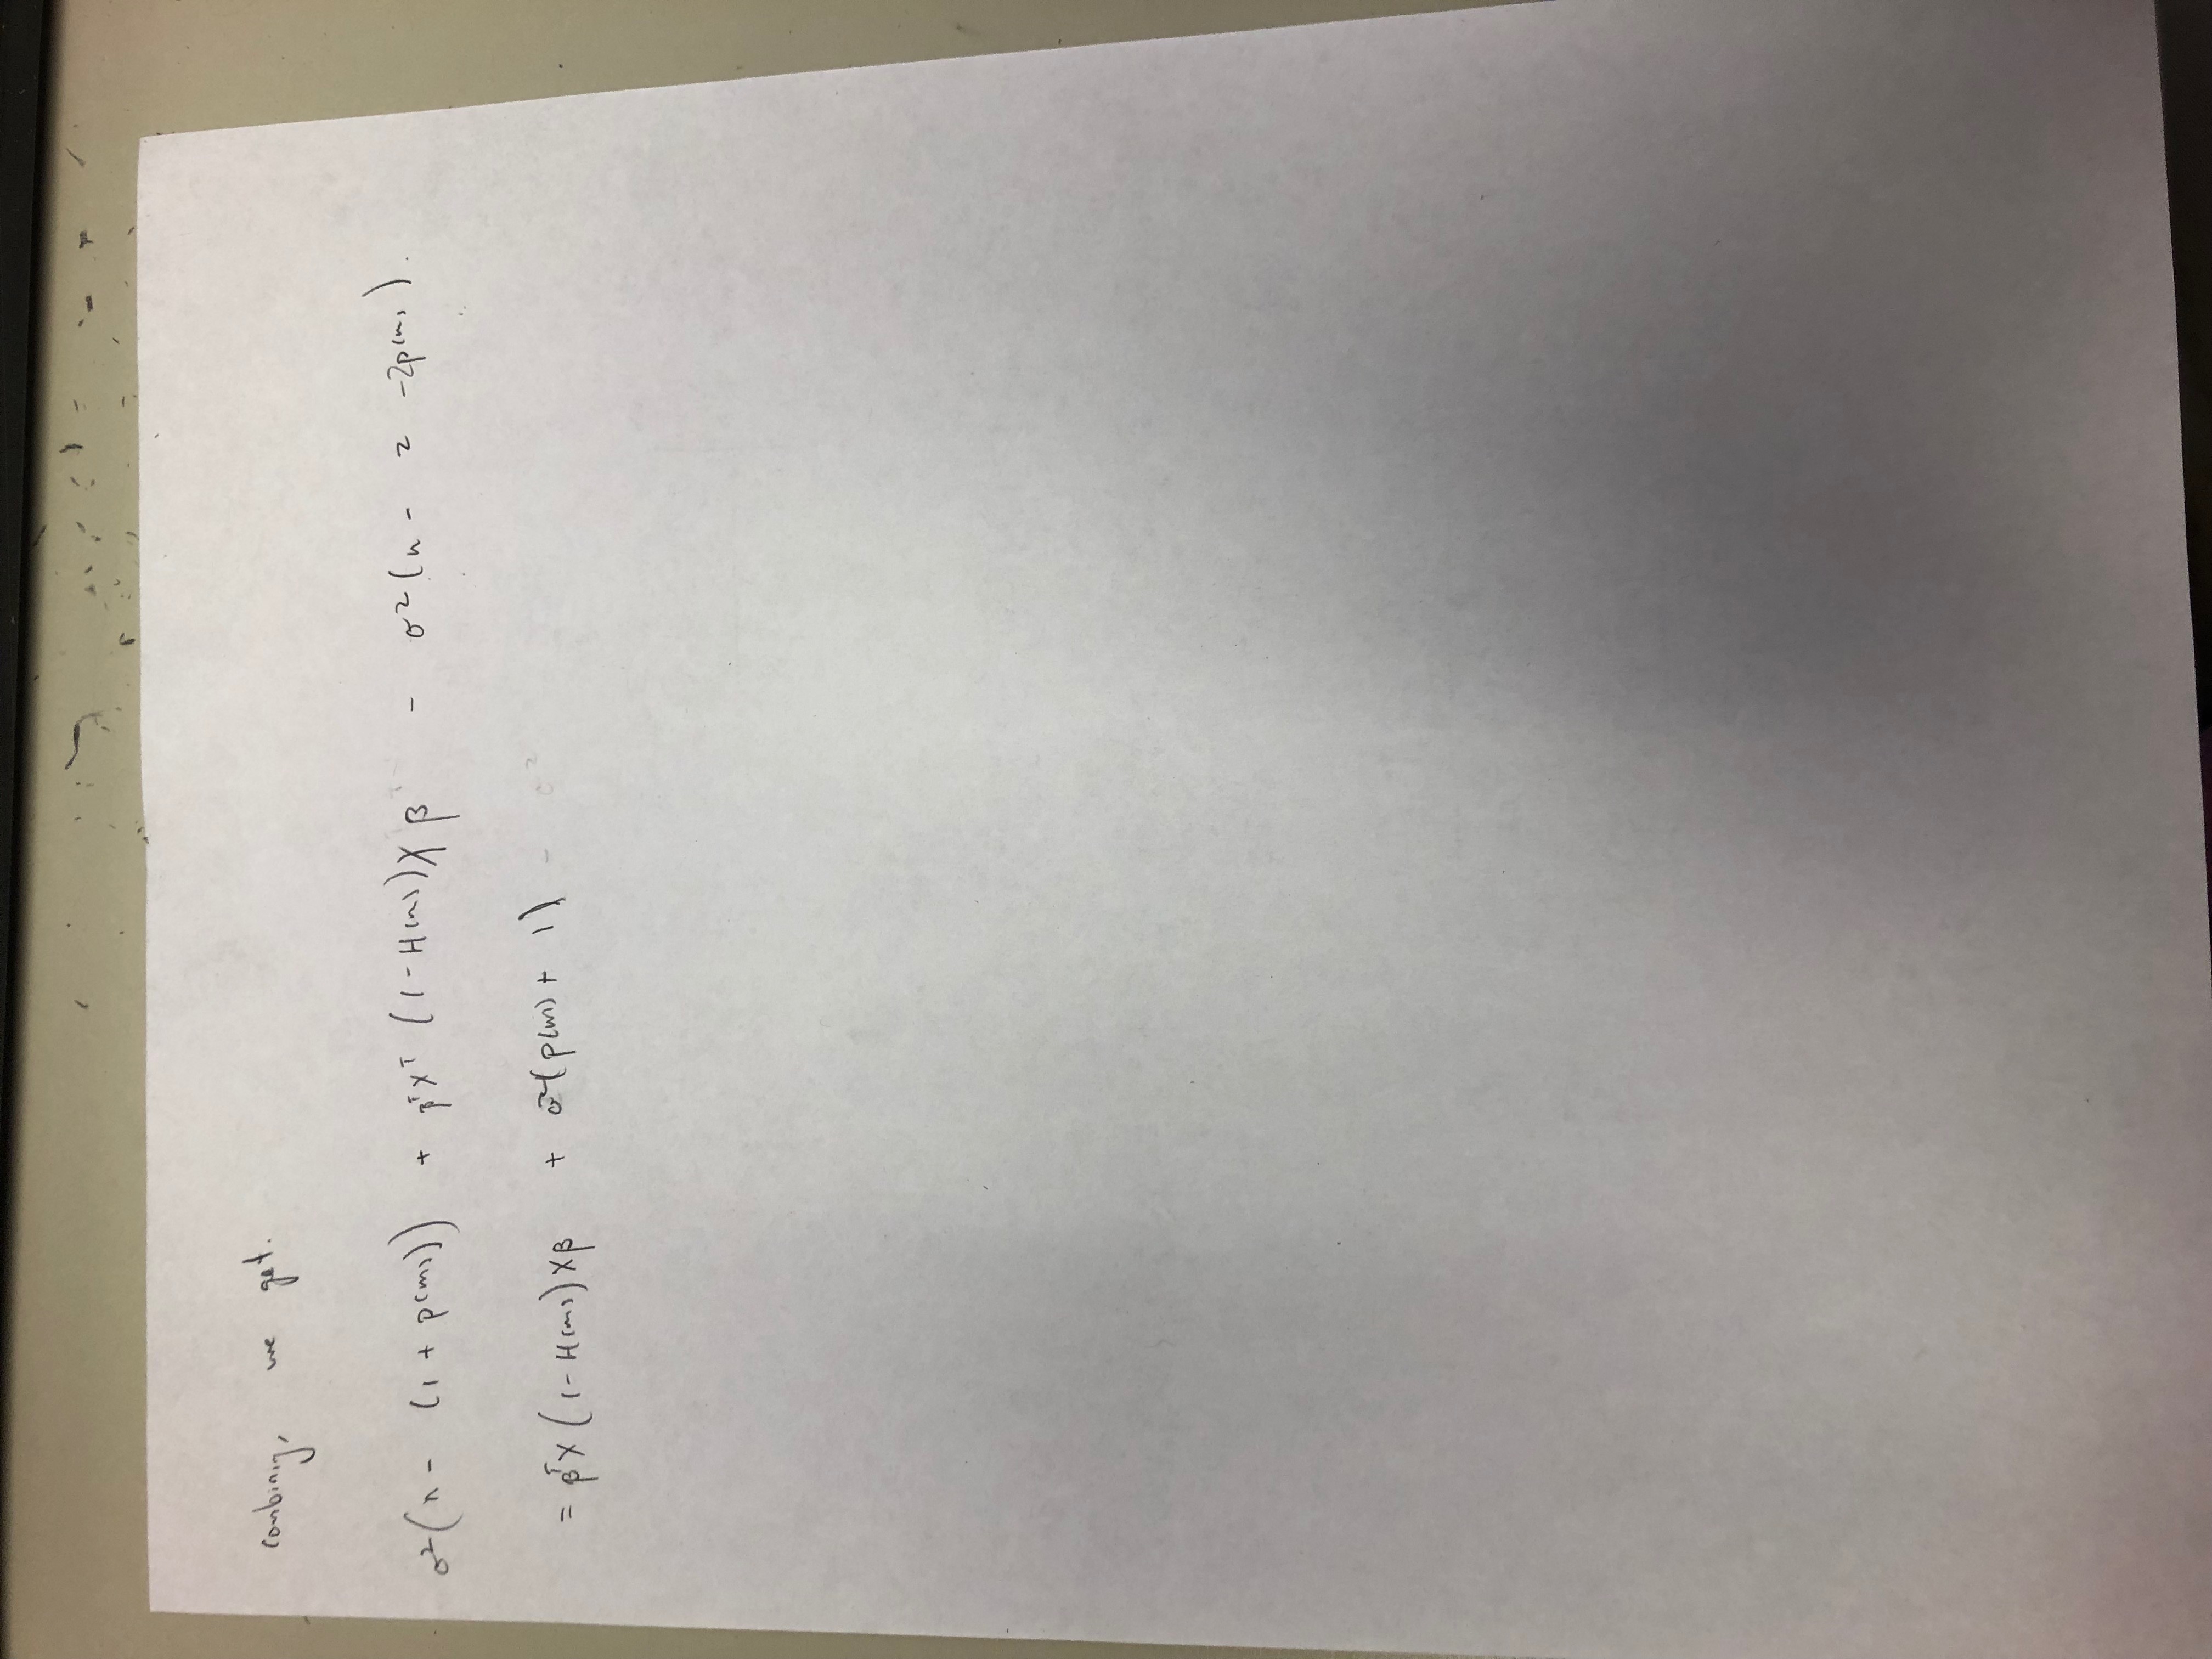 combining, we get.
σ²(n - (1 + p(m))) + βᵀXᵀ (1-H(m))Xβ - σ²(n - 2 -2p(m)).
= βᵀX (1-H(m))Xβ + σ²(p(m) + 1)